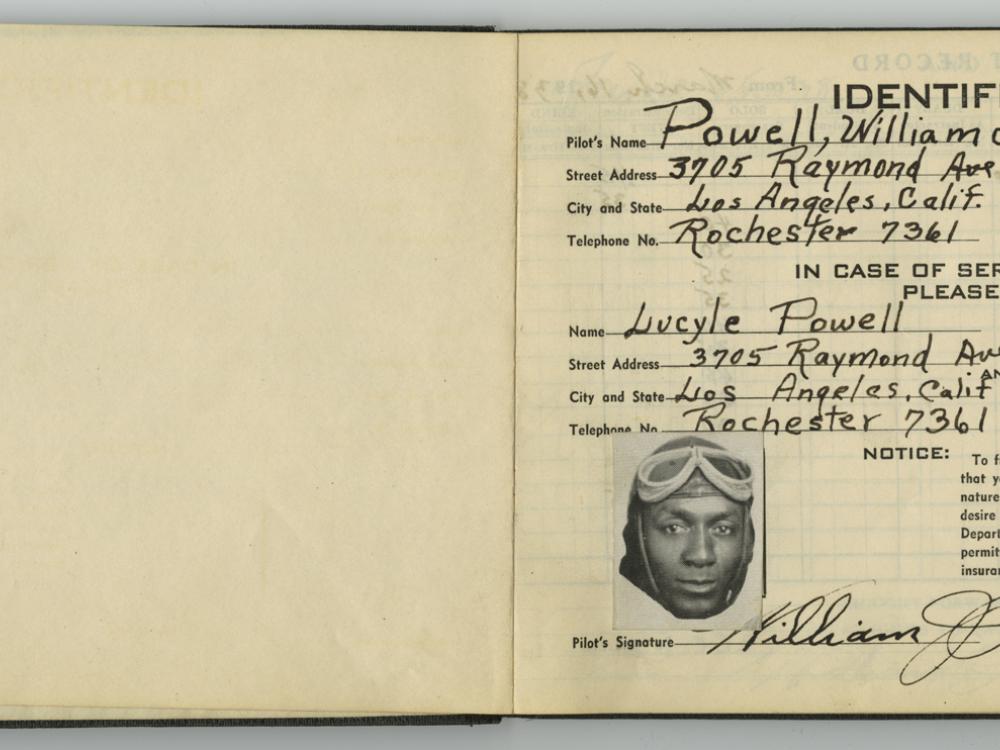 IDENTIF
Pilot's Name Powell, William
Street Address 3705 Raymond Ave
City and State Los Angeles, Calif.
Telephone No. Rochester 7361
IN CASE OF SER
PLEASE
Name Lucyle Powell
Street Address 3705 Raymond Ave
AN
City and State Los Angeles, Calif
Telephone No. Rochester 7361
NOTICE: To f
that y
nature
desire
Depart
permit
insura
Pilot's Signature William J